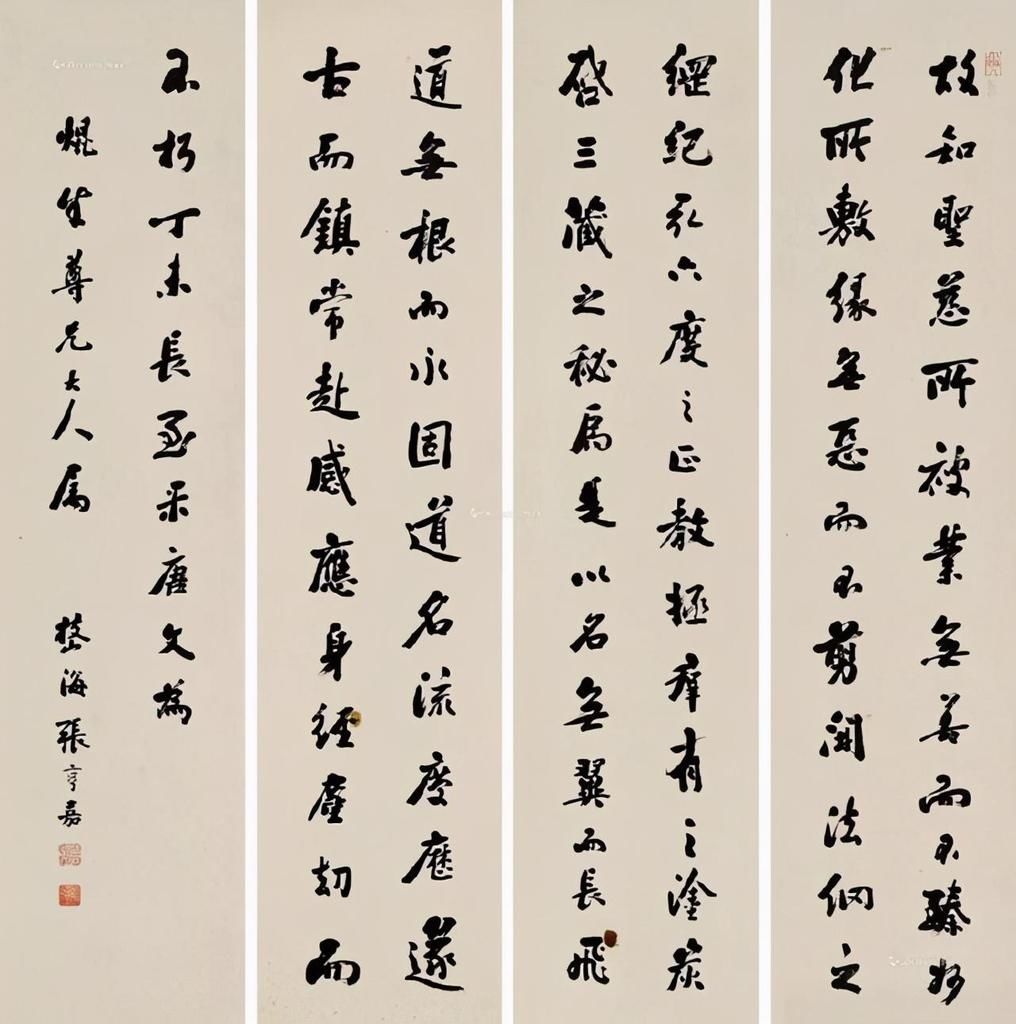 故知聖慈所被業無善而不臻妙
化所敷緣無惡而不剪開法網之
綱紀弘六度之正教拯群有之塗炭
啓三藏之秘扃是以名無翼而長飛
道無根而永固道名流慶歷遂
古而鎮常赴感應身經塵劫而
不朽丁未長至采唐文為
焜生尊兄大人属 海張亨嘉